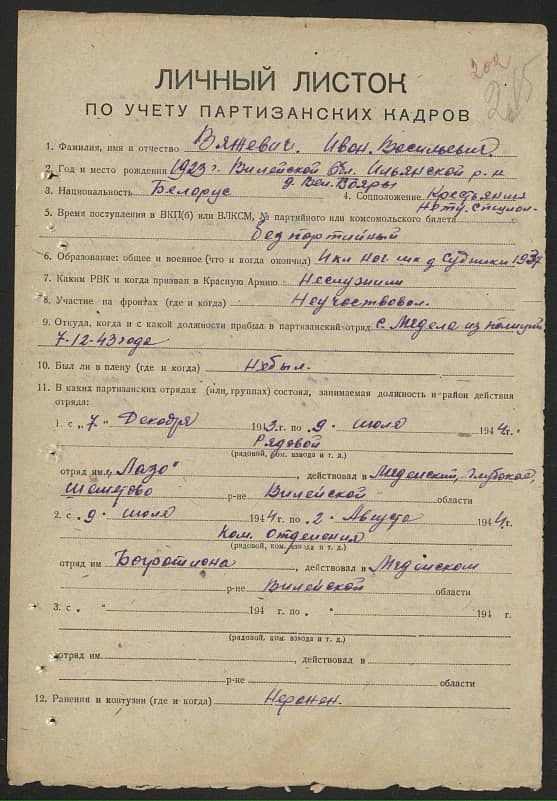 202
215
ЛИЧНЫЙ ЛИСТОК
ПО УЧЕТУ ПАРТИЗАНСКИХ КАДРОВ
1. Фамилия, имя и отчество Вяжевич. Иван. Васильевич.
2. Год и место рождения 1923 г. Вилейской обл. Ильянской р-н
д. Вел. Бояры
3. Национальность Белорус 4. Соцположение Крестьянин
Нету. специал.
5. Время поступления в ВКП(б) или ВЛКСМ, № партийного или комсомольского билета
Без партийный
6. Образование: общее и военное (что и когда окончил) 4 кл шк д Судники 193
7. Каким РВК и когда призван в Красную Армию Неслужили
8. Участие на фронтах (где и когда) Неучаствовал.
9. Откуда, когда и с какой должности прибыл в партизанский отряд с. Мядела из полиции
7-12-43 года
10. Был ли в плену (где и когда) Небыл.
11. В каких партизанских отрядах (или группах) состоял, занимаемая должность и район действия
отряда:
1. с „7" Декабря 1943 г. по „9 июля 1944 г.
Рядовой
(рядовой, ком. взвода и т. д.)
отряд им. „Лазо" , действовал в Мяделский, Глубокое,
Шометово р-не Вилейской области
2. с „9 июля 1944 г. по „2" Августа 1944 г.
Ком. отделения
(рядовой, ком. взвода и т. д.)
отряд им Богротиона , действовал в Мяделском
р-не Вилейской области
3. с „ " 194 г. по „ " 194 г.
(рядовой, ком. взвода и т. д.)
отряд им. , действовал в
р-не области
12. Ранения и контузии (где и когда) Неранен.